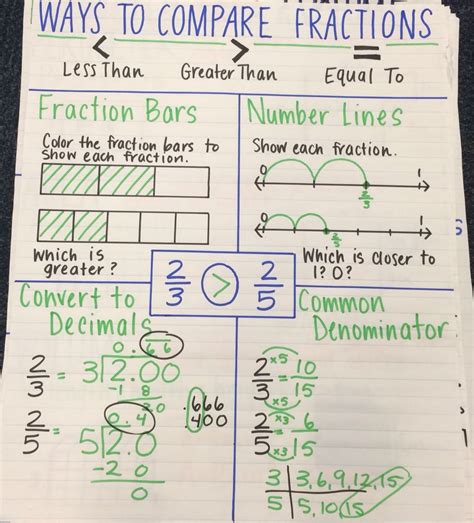 WAYS TO COMPARE FRACTIONS
< > =
Less Than Greater Than Equal To
Fraction Bars
Color the fraction bars to
show each fraction.
Which is
greater?
Number Lines
Show each fraction.
0 1
2/3
0 1
2/5
Which is closer to
1? 0?
2/3 > 2/5
Convert to
Decimals
0.66
2/3 = 3)2.00
-1 8
20
0.4
.666
.400
2/5 = 5)2.0
-2 0
0
Common
Denominator
2/3 ×5 ×5 = 10/15
2/5 ×3 ×3 = 6/15
3 3,6,9,12,15
5 5,10,15